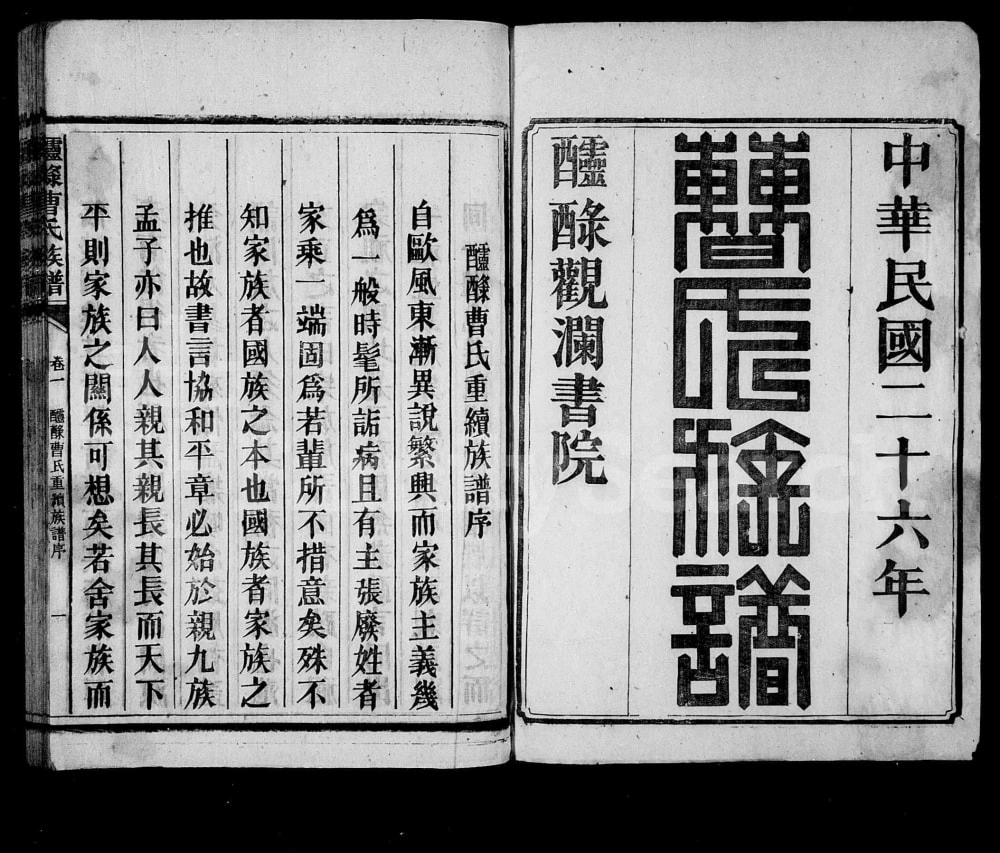 中華民國二十六年
曹氏族譜
醽醁觀瀾書院
醽醁曹氏重續族譜序
自歐風東漸異說繁興而家族主義幾
爲一般時髦所詬病且有主張廢姓者
家乘一端固爲若輩所不措意矣殊不
知家族者國族之本也國族者家族之
推也故書言協和平章必始於親九族
孟子亦曰人人親其親長其長而天下
平則家族之關係可想矣若舍家族而
醽醁曹氏族譜
卷一
醽醁曹氏重續族譜序
一